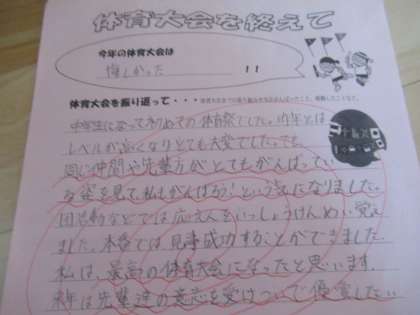 体育大会を終えて
今年の体育大会は
悔しかった !!
体育大会を振り返って・・・
中学生になって初めての体育祭でした。昨年とは
レベルが高くなりとても大変でした。でも、
同じ仲間や先輩方がとてもがんばってい
る姿を見て、私もがんばろう!という気になりました。
団活動などでは応援をいっしょうけんめい覚え
ました。本番では見事成功することができました。
私は、最高の体育大会になったと思います。
来年は先輩達の意志を受けついで優賞したい